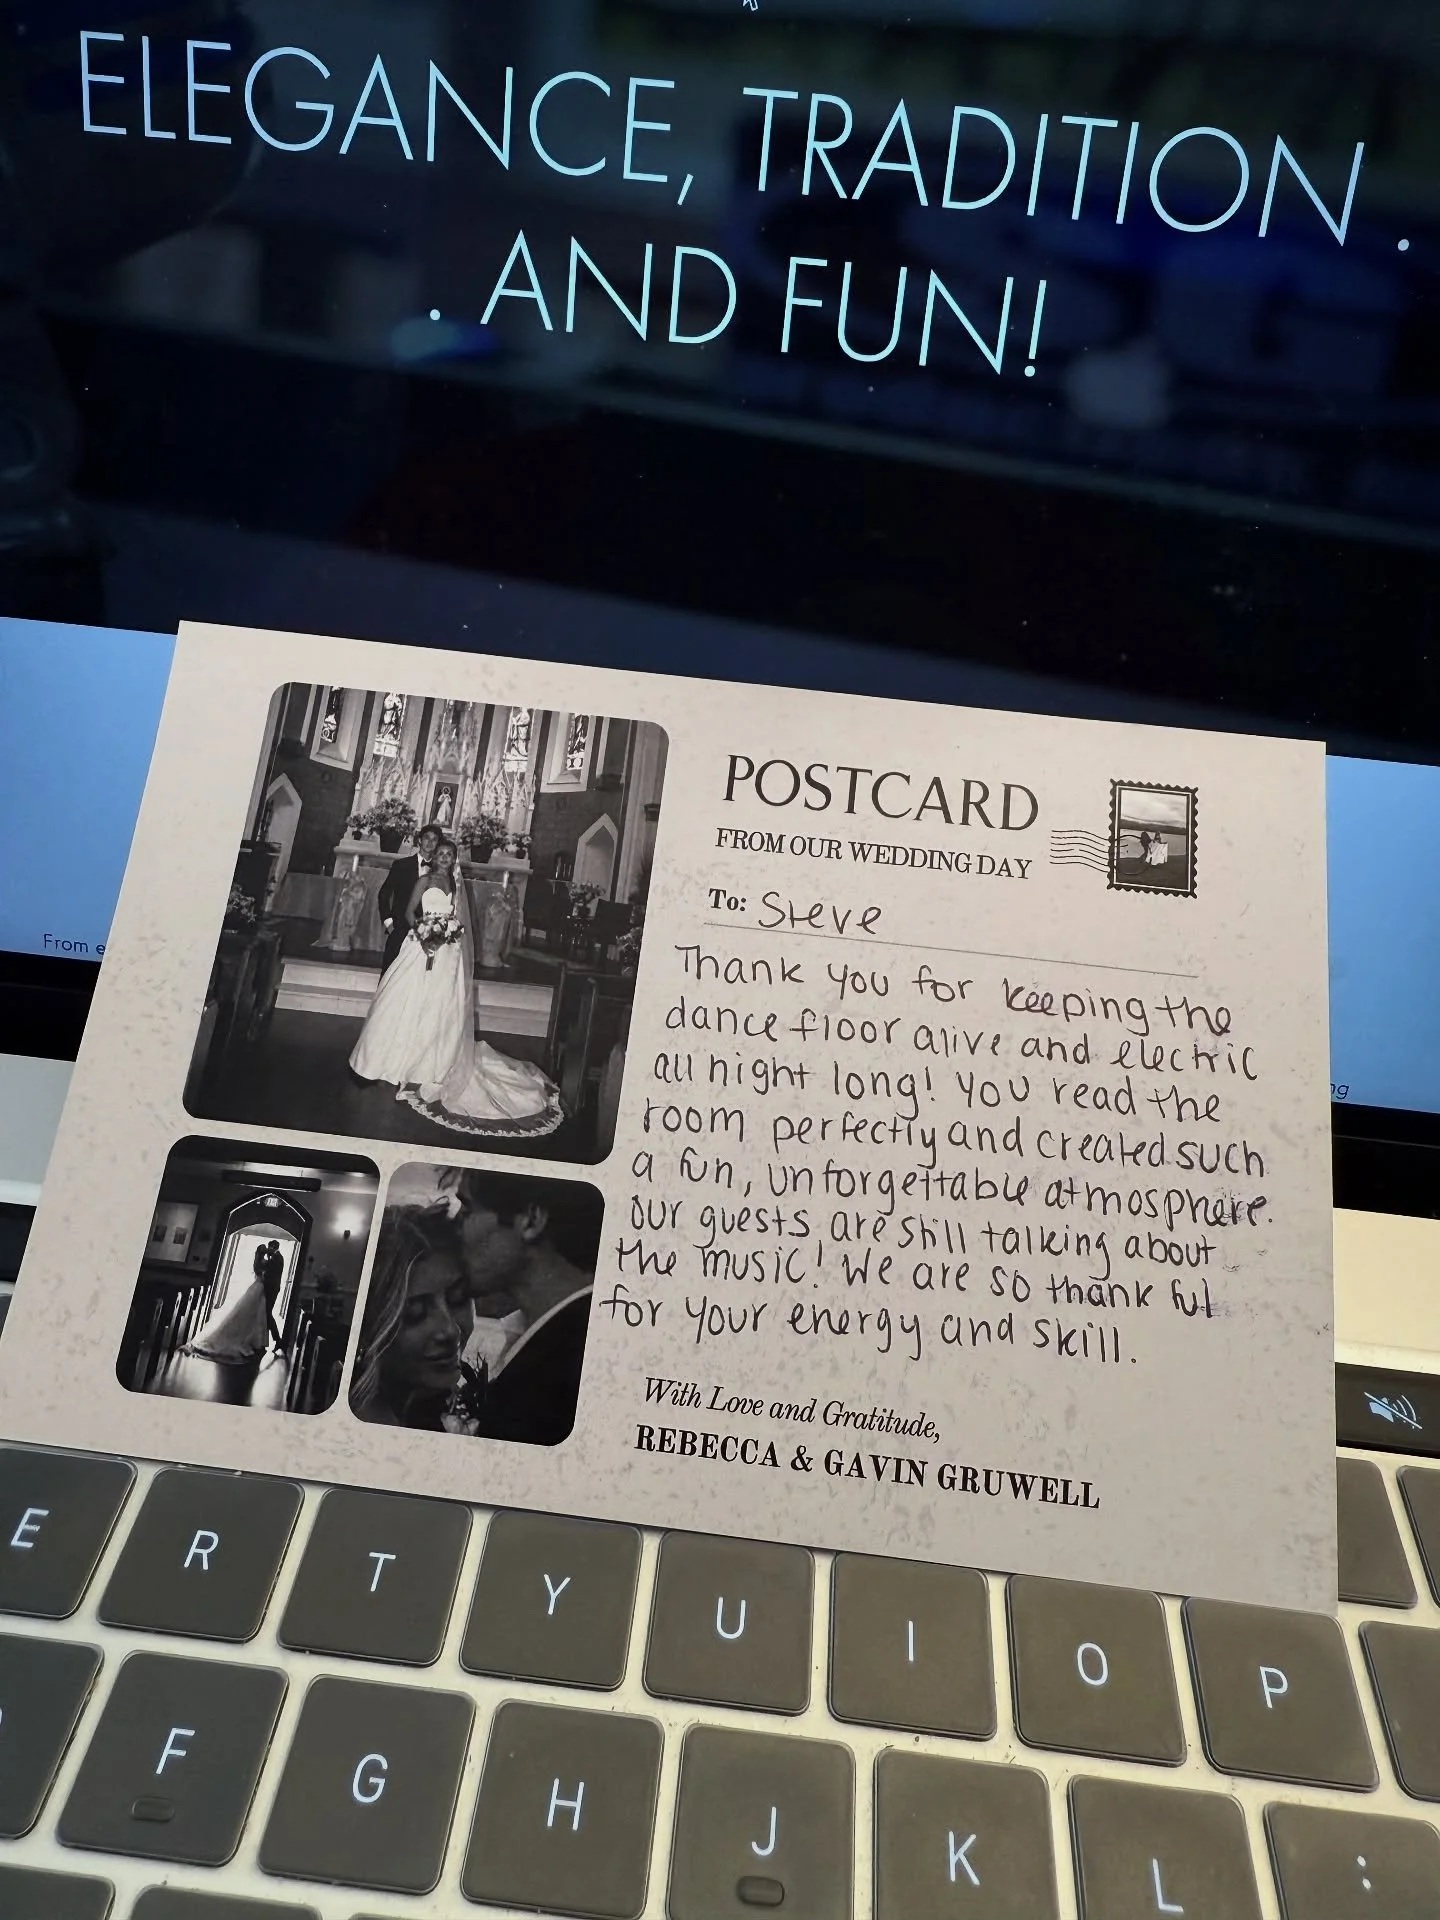 ELEGANCE, TRADITION .
. AND FUN!
From e
ng
POSTCARD
FROM OUR WEDDING DAY
To: Steve
Thank you for keeping the
dance floor alive and electric
all night long! You read the
room perfectly and created such
a fun, unforgettable atmosphere.
Our guests are still talking about
the music! We are so thankful
for your energy and skill.
With Love and Gratitude,
REBECCA & GAVIN GRUWELL
E R T Y U I O P
F G H J K L :